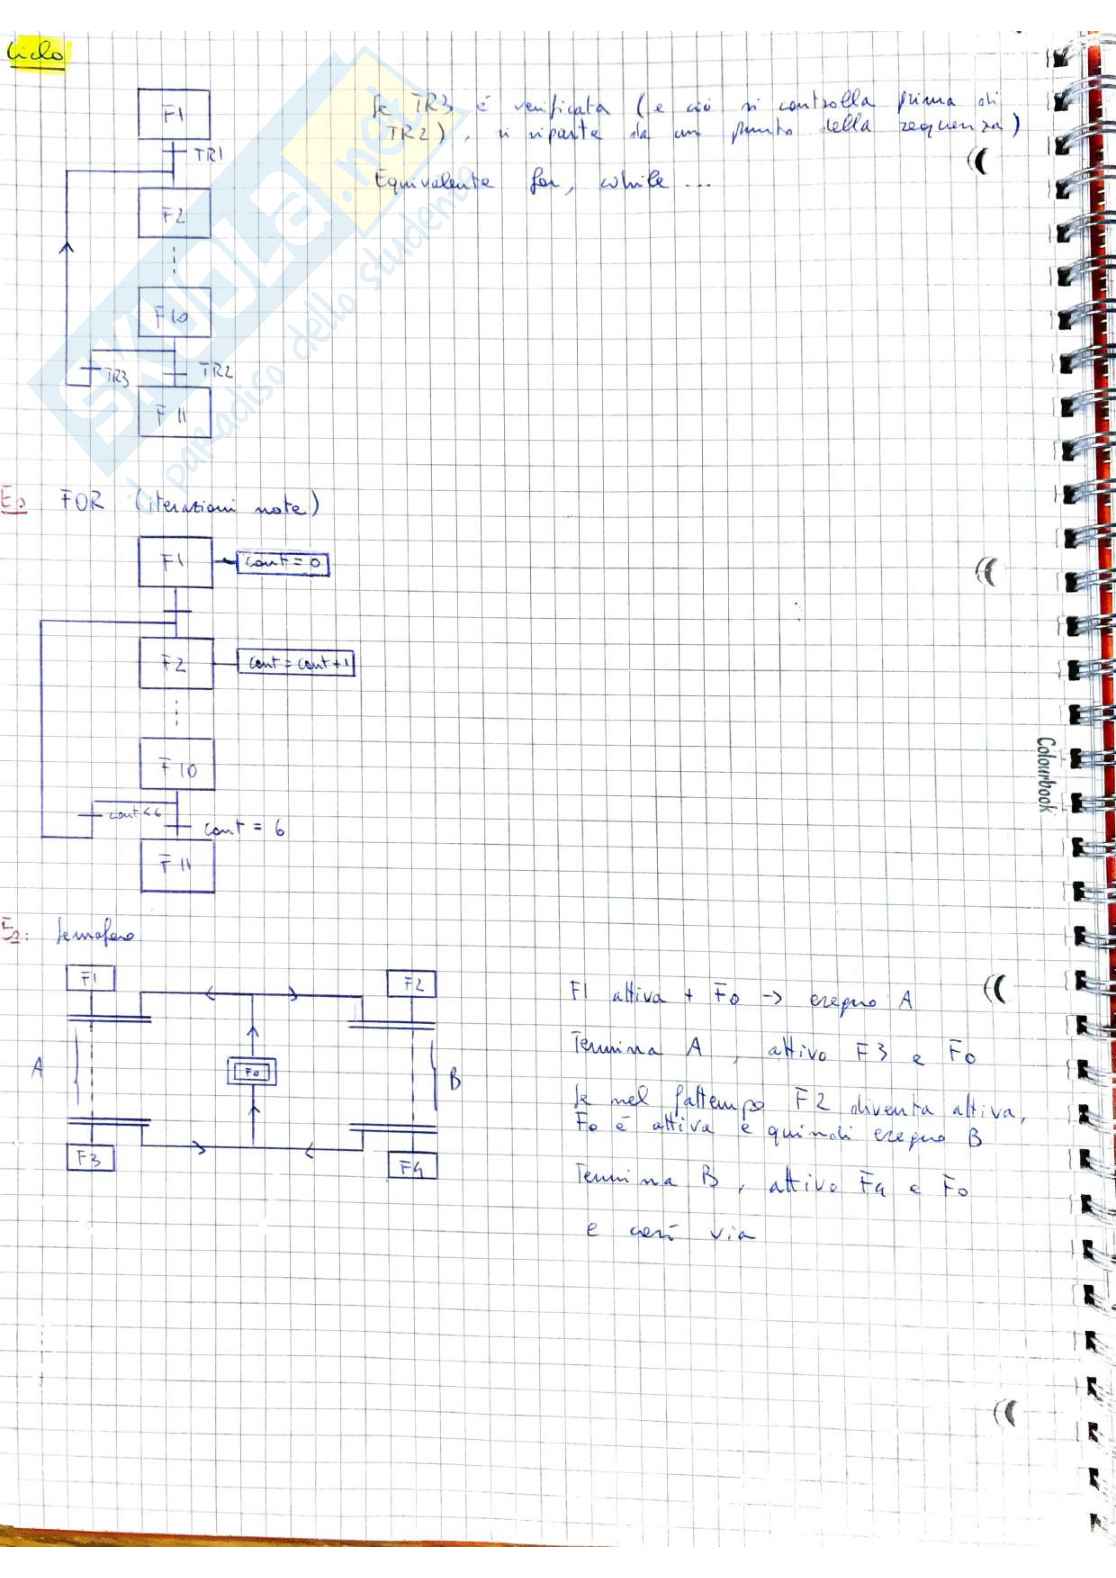 Ciclo
F1
Se TR3 è verificata (e ciò si controlla prima di
TR2), si riparte da un punto della sequenza)
TR1
Equivalente for, while ...
F2
F10
TR3
TR2
F11
SKUOLA.net
il paradiso dello studente
Es FOR (iterazioni note)
F1
cont = 0
F2
cont = cont + 1
F10
cont < 6
cont = 6
F11
Colourbook
Es: Semaforo
F1
F2
F1 attiva + F0 -> eseguo A
A
F0
B
Termina A, attivo F3 e F0
Se nel frattempo F2 diventa attiva,
F0 è attiva e quindi eseguo B
F3
F4
Termina B, attivo F4 e F0
e così via